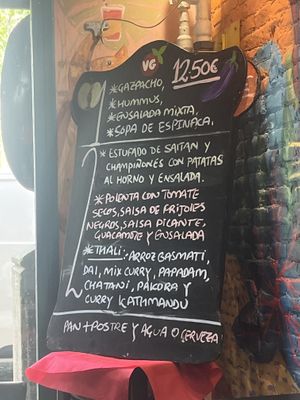 VG 12.50€
1
*GAZPACHO,
*HUMMUS,
*ENSALADA MIXTA,
*SOPA DE ESPINACA.
2
*ESTUFADO DE SAITAN Y
CHAMPIÑONES CON PATATAS
AL HORNO Y ENSALADA.
*POLENTA CON TOMATE
SECOS, SALSA DE FRIJOLES
NEGROS, SALSA PICANTE,
GUACAMOTE Y ENSALADA
*THALI: ARROZ BASMATI,
DAI, MIX CURRY, PAPADAM,
CHATANI, PAKORA Y
CURRY KATHMANDU
PAN + POSTRE Y AGUA O CERVEZA